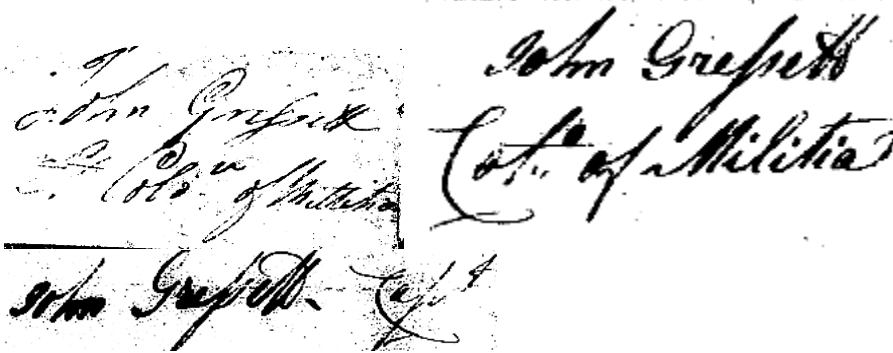 John Gressett
Lt Colo of Militia
John Gressett
Colo of Militia
John Gressett Capt